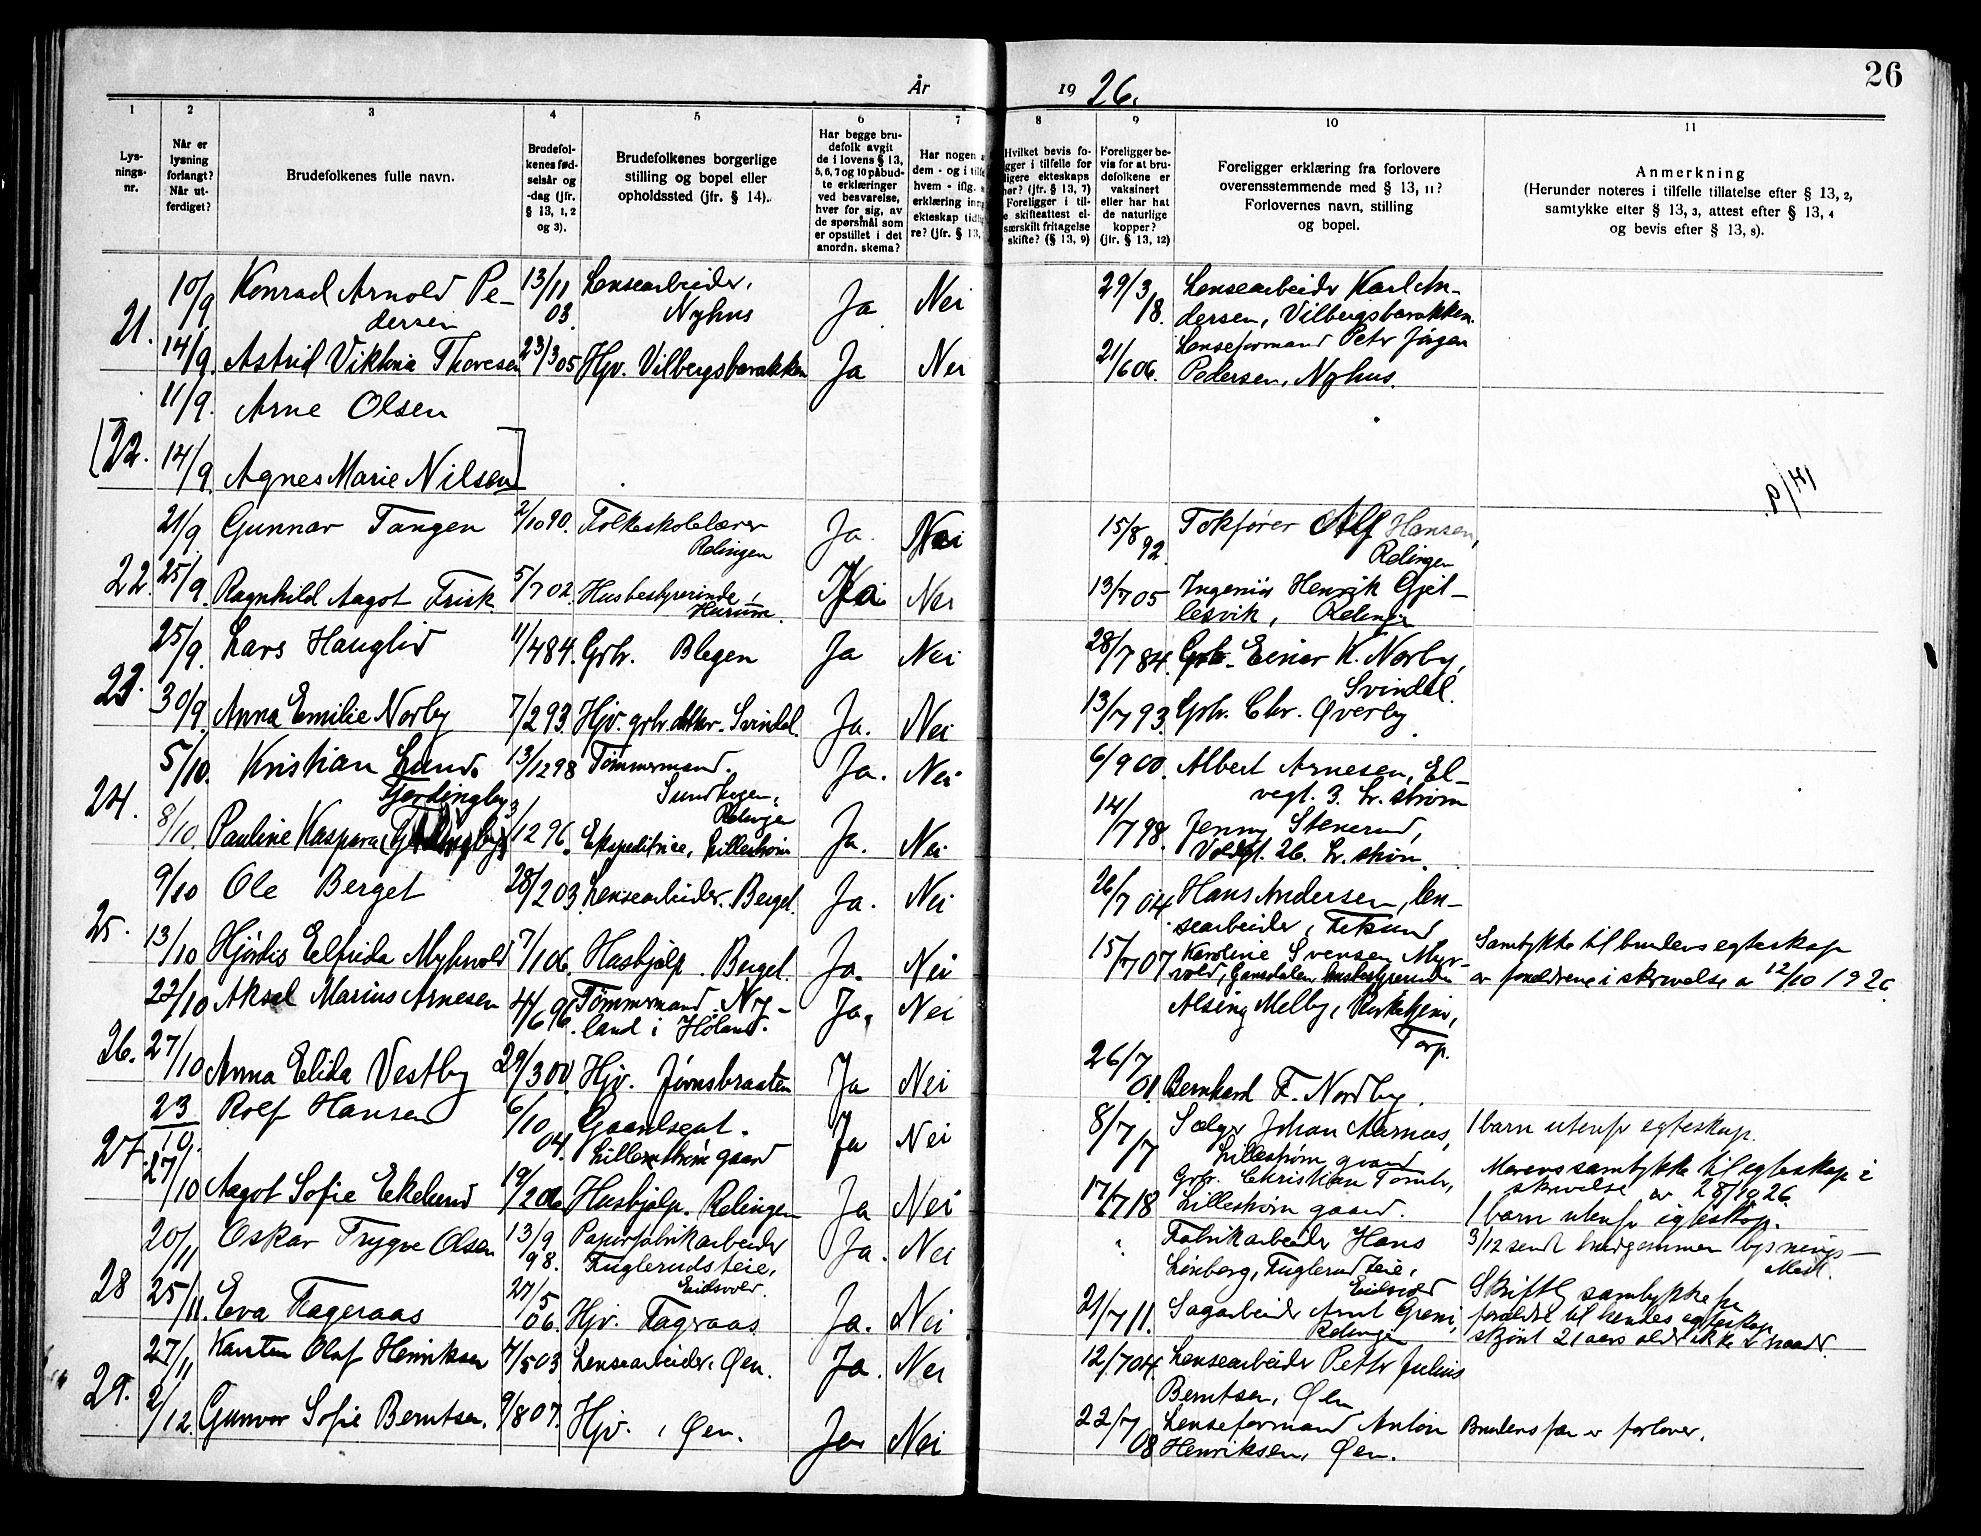 26
År 1926.
1 2 3 4 5 6 7 8 9 10 11
Lys-
nings-
nr.
Når er
lysning
forlangt?
Når ut-
ferdiget?
Brudefolkenes fulle navn.
Brudefol-
kenes fød-
selsår og
-dag (jfr.
§ 13, 1, 2
og 3).
Brudefolkenes borgerlige
stilling og bopel eller
opholdssted (jfr. § 14).
Har begge bru-
defolk avgit
de i lovens § 13,
5, 6, 7 og 10 påbud-
te erklæringer
ved besvarelse,
hver for sig, av
de spørsmål som
er opstillet i det
anordn. skema?
Har nogen a
dem - og i tilfe
hvem - iflg. s
erklæring inn
ekteskap tidlig
re? (jfr. § 13,
Hvilket bevis fo-
gger i tilfelle for
ligere ekteskaps
hør? (jfr. § 13, 7)
Foreligger i til-
e skifteattest el-
særskilt fritagelse
skifte? (§ 13, 9)
Foreligger be-
vis for at bru-
defolkene er
vaksinert
eller har hat
de naturlige
kopper?
(jfr. § 13, 12)
Foreligger erklæring fra forlovere
overensstemmende med § 13, 11?
Forlovernes navn, stilling
og bopel.
Anmerkning
(Herunder noteres i tilfelle tillatelse efter § 13, 2,
samtykke efter § 13, 3, attest efter § 13, 4
og bevis efter § 13, 8).
21. 10/9 Konrad Arnold Pe-
dersen 13/11 03. Lensearbeider, Nyhus Ja Nei 29/3 18. Lensearbeider Karl An-
dersen, Vilbergsbarakken.
14/9. Astrid Viktoria Thoresen 23/3 05 Hjv. Vilbergsbarakken Ja Nei 21/6 06. Lenseformand Petr Jørgen
Pedersen, Nyhus.
11/9. Arne Olsen
[22. 14/9. Agnes Marie Nilsen]
21/9 Gunnar Tangen 2/10 90. Folkeskolelærer
Relingen Ja. Nei 15/8 92. Tokfører Alf Hansen,
Relingen
22. 25/9. Ragnhild Aagot Frisk 5/7 02. Husbestyrerinde,
Hurum. Ja Nei 13/7 05 Ingeniør Henrik Gjel-
lesvik, Relingen
25/9. Lars Hauglid 11/4 84. Grbr. Blegen Ja Nei 28/7 84. Grb. Einar K. Norby,
Svindal.
23. 30/9. Anna Emilie Norby 7/2 93. Hjv. grbr.datter. Svindal. Ja. Nei 13/7 93. Grbr. Chr. Øverby.
5/10. Kristian Lund. 13/12 98 Tømmermand.
Sundbyen,
Relingen Ja. Nei 6/9 00. Albert Arnesen, El-
vegt. 3. Lr.strøm
24. 8/10. Pauline Kaspara Fjerdingby 3/12 96. Ekspeditrice, Lillestrøm Ja. Nei 14/7 98. Jenny Stenerud,
Voldgt. 26. Lr.strøm.
9/10 Ole Berget 28/2 03. Lensearbeider. Berget. Ja. Nei 26/7 04. Hans Andersen, len-
searbeider, Fetsund
25. 13/10 Hjørdis Elfrida Myhrvold 7/1 06. Husbjelp. Berget. Ja. Nei 15/7 07 Karoline Svensen Myr-
vold, Gansdalen, husbestyrerinde Samtykke til brudens egteskap
av forældrene i skrivelse a 12/10 1926.
22/10 Aksel Marius Arnesen 4/6 96. Tømmermand. Ny-
land i Høland. Ja. Nei Alsing Melby, Kirketjener,
Torp.
26. 27/10 Anna Elida Vestby 29/3 00. Hjv. Jønsbraaten Ja Nei 26/7 01. Bernhard F. Nordby.
23/10. Rolf Hansen 6/10 04. Gaardsgut.
Lillestrøm gaard Ja Nei 8/7 Sælger Johan Aarnæs,
Lillestrøm gaard 1 barn utenfr egteskap.
27. 27/10 Aagot Sofie Ekelund 19/2 06 Husbjelp. Relingen Ja Nei 17/7 18 Grbr. Christian Tomter,
Lillestrøm gaard. Morens samtykke til egteskap i
skrivelse av 28/10 26
1 barn utenfr egteskap.
20/11 Oskar Trygve Olsen 13/9 98. Papirfabrikarbeider
Fuglerudsteie,
Eidsvold. Ja. Nei " Fabrikarbeider Hans
Lønberg, Fuglerudsteie,
Eidsvold 3/12 sendt brudgommen lysnings-
attest.
28 25/11. Eva Fageraas 27/5 06. Hjv. Fagraas Ja. Nei 21/7 11. Sagarbeider Arnt Greni,
Relingen Skriftl. samtykke fr
forældre til hendes egteskap,
skjønt 21 aars alder ikke er naadd.
27/11 Karsten Olaf Henriksen 4/5 03 Lensearbeider, Øen. Ja. Nei 12/7 04. Lensearbeider Petter Julius
Berntsen, Øen
29. 2/12. Gunvor Sofie Berntsen. 9/8 07. Hjv., Øen. Ja Nei 22/7 08 Lenseformand Anton
Henriksen, Øen. Brudens far er forlover.